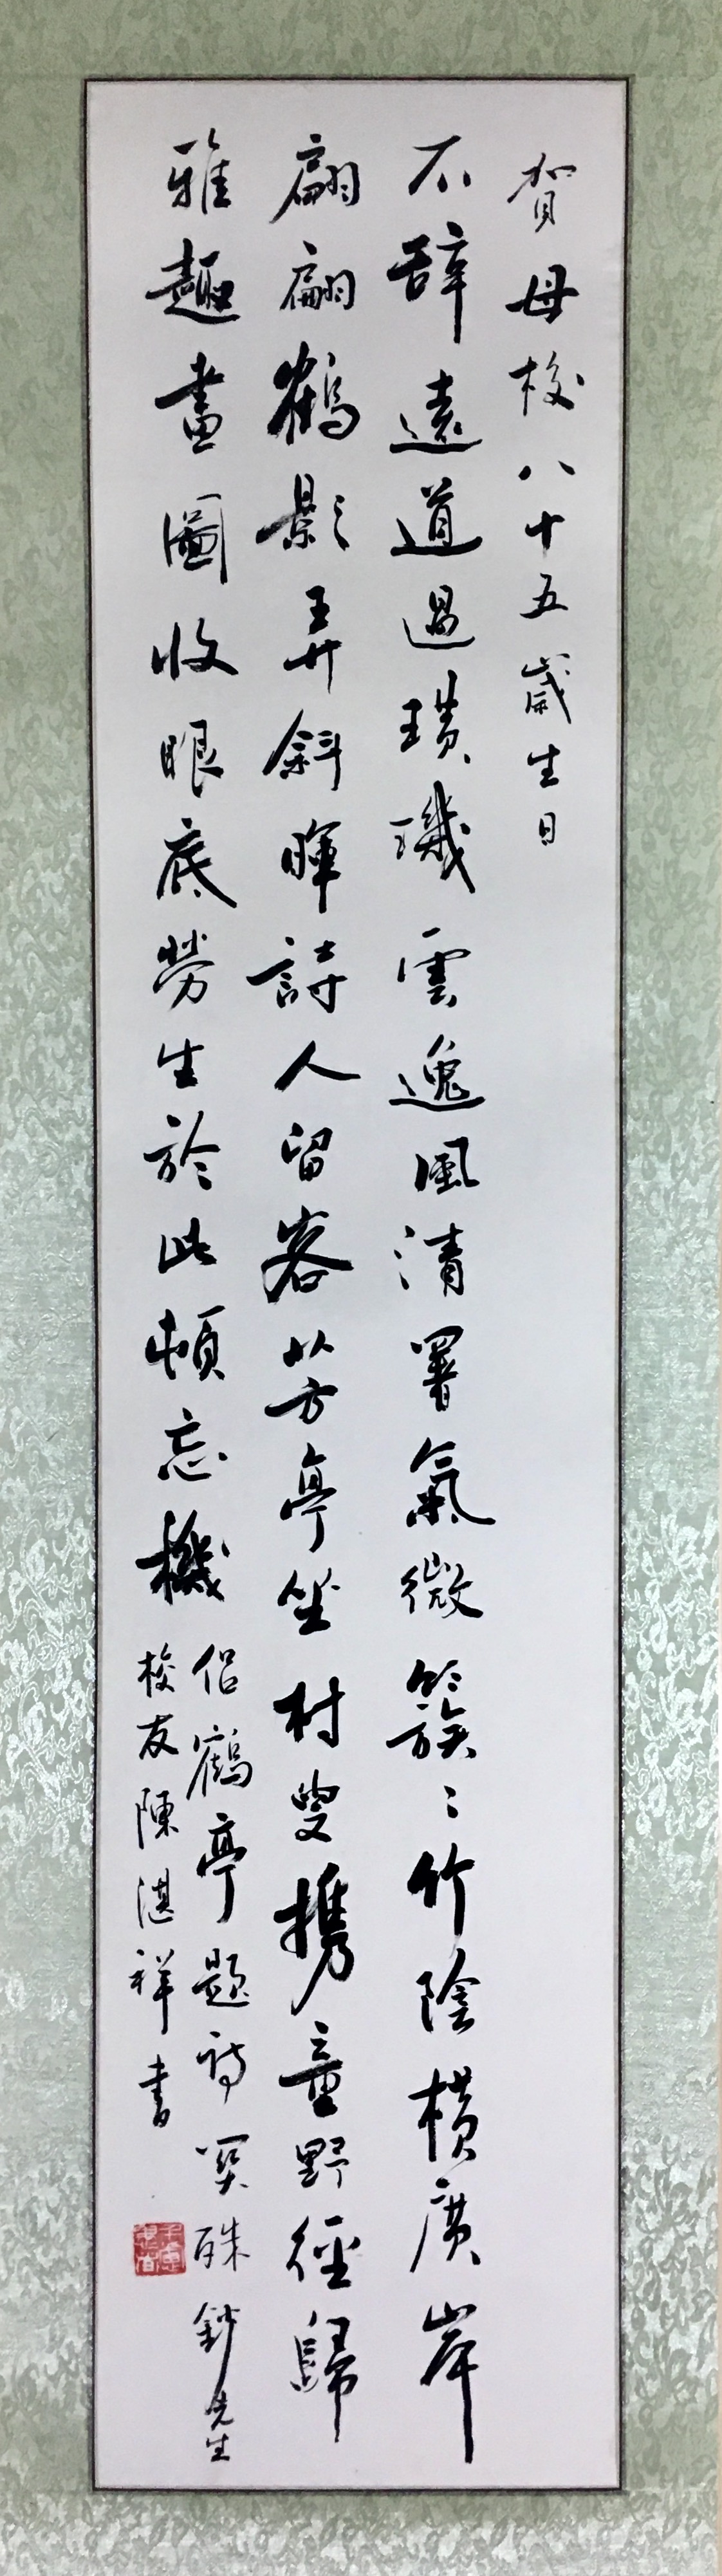 賀母校八十五歲生日
不辭遠道過璜璣雲逸風清暑氣微簇〻竹陰橫廣岸
翩翩鶴影弄斜暉詩人留客芳亭坐村叟携童野徑歸
雅趣畫圖收眼底勞生於此頓忘機
侶鶴亭題詩関殊鈔先生
校友陳湛祥書